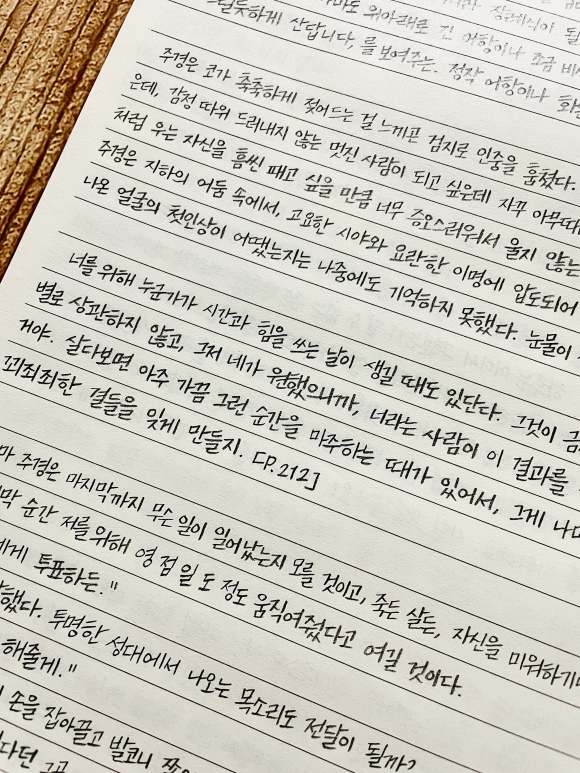 위아래로 긴 어항이나 조금
럼 산답니다, 를 보여주는. 정작 어항이나
주경은 코가 축축하게 젖어드는 걸 느끼곤 검지로 인중을 훔쳤다.
은데, 감정 따위 드러내지 않는 멋진 사람이 되고 싶은데 자꾸
처럼 우는 자신을 흠씬 때고 싶을 만큼 너무 증오스러워서 울지 않는
주경은 지하의 어둠 속에서, 고요한 시야와 요란한 이명에 압도되어
나온 얼굴의 첫인상이 어땠는지는 나중에도 기억하지 못했다. 눈물이
너를 위해 누군가가 시간과 힘을 쓰는 날이 생길 때도 있단다. 그것이
별로 상관하지 않고, 그저 네가 원했으니까, 너라는 사람이 이 결과를
거야. 살다보면 아주 가끔 그런 순간을 마주하는 때가 있어서, 그게
꾀죄죄한 결들을 잊게 만들지. [P.212]
마 주경은 마지막까지 무슨 일이 일어났는지 모를 것이고, 죽든 살든, 자신을
막 순간 저를 위해 영 점 일 도 정도 움직여줬다고 여길 것이다.
에게 투표하든."
했다. 투명한 성대에서 나오는 목소리도 전달이 될까?
해줄게."
손을 잡아끌고 발코니
다던